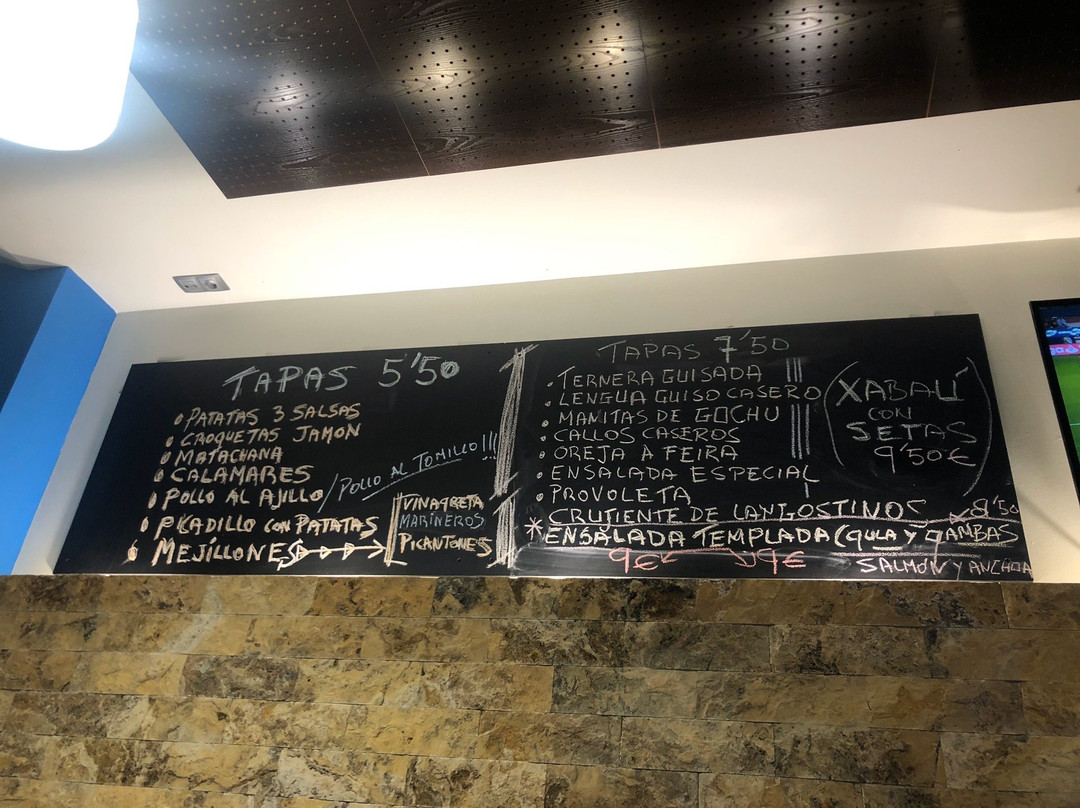 TAPAS 5'50
PATATAS 3 SALSAS
CROQUETAS JAMON
MATACHANA
CALAMARES
POLLO AL AJILLO / POLLO AL TOMILLO!!!
PICADILLO CON PATATAS
MEJILLONES
VINAGRETA
MARINEROS
PICANTONES
TAPAS 7'50
TERNERA GUISADA
LENGUA GUISO CASERO
MANITAS DE GOCHU
CALLOS CASEROS
OREJA A FEIRA
ENSALADA ESPECIAL
PROVOLETA
CRUJIENTE DE LANGOSTINOS 8'50
*ENSALADA TEMPLADA (GULA Y GAMBAS
9€ 9€
SALMÓN Y ANCHOA
XABALÍ
CON
SETAS
9'50€